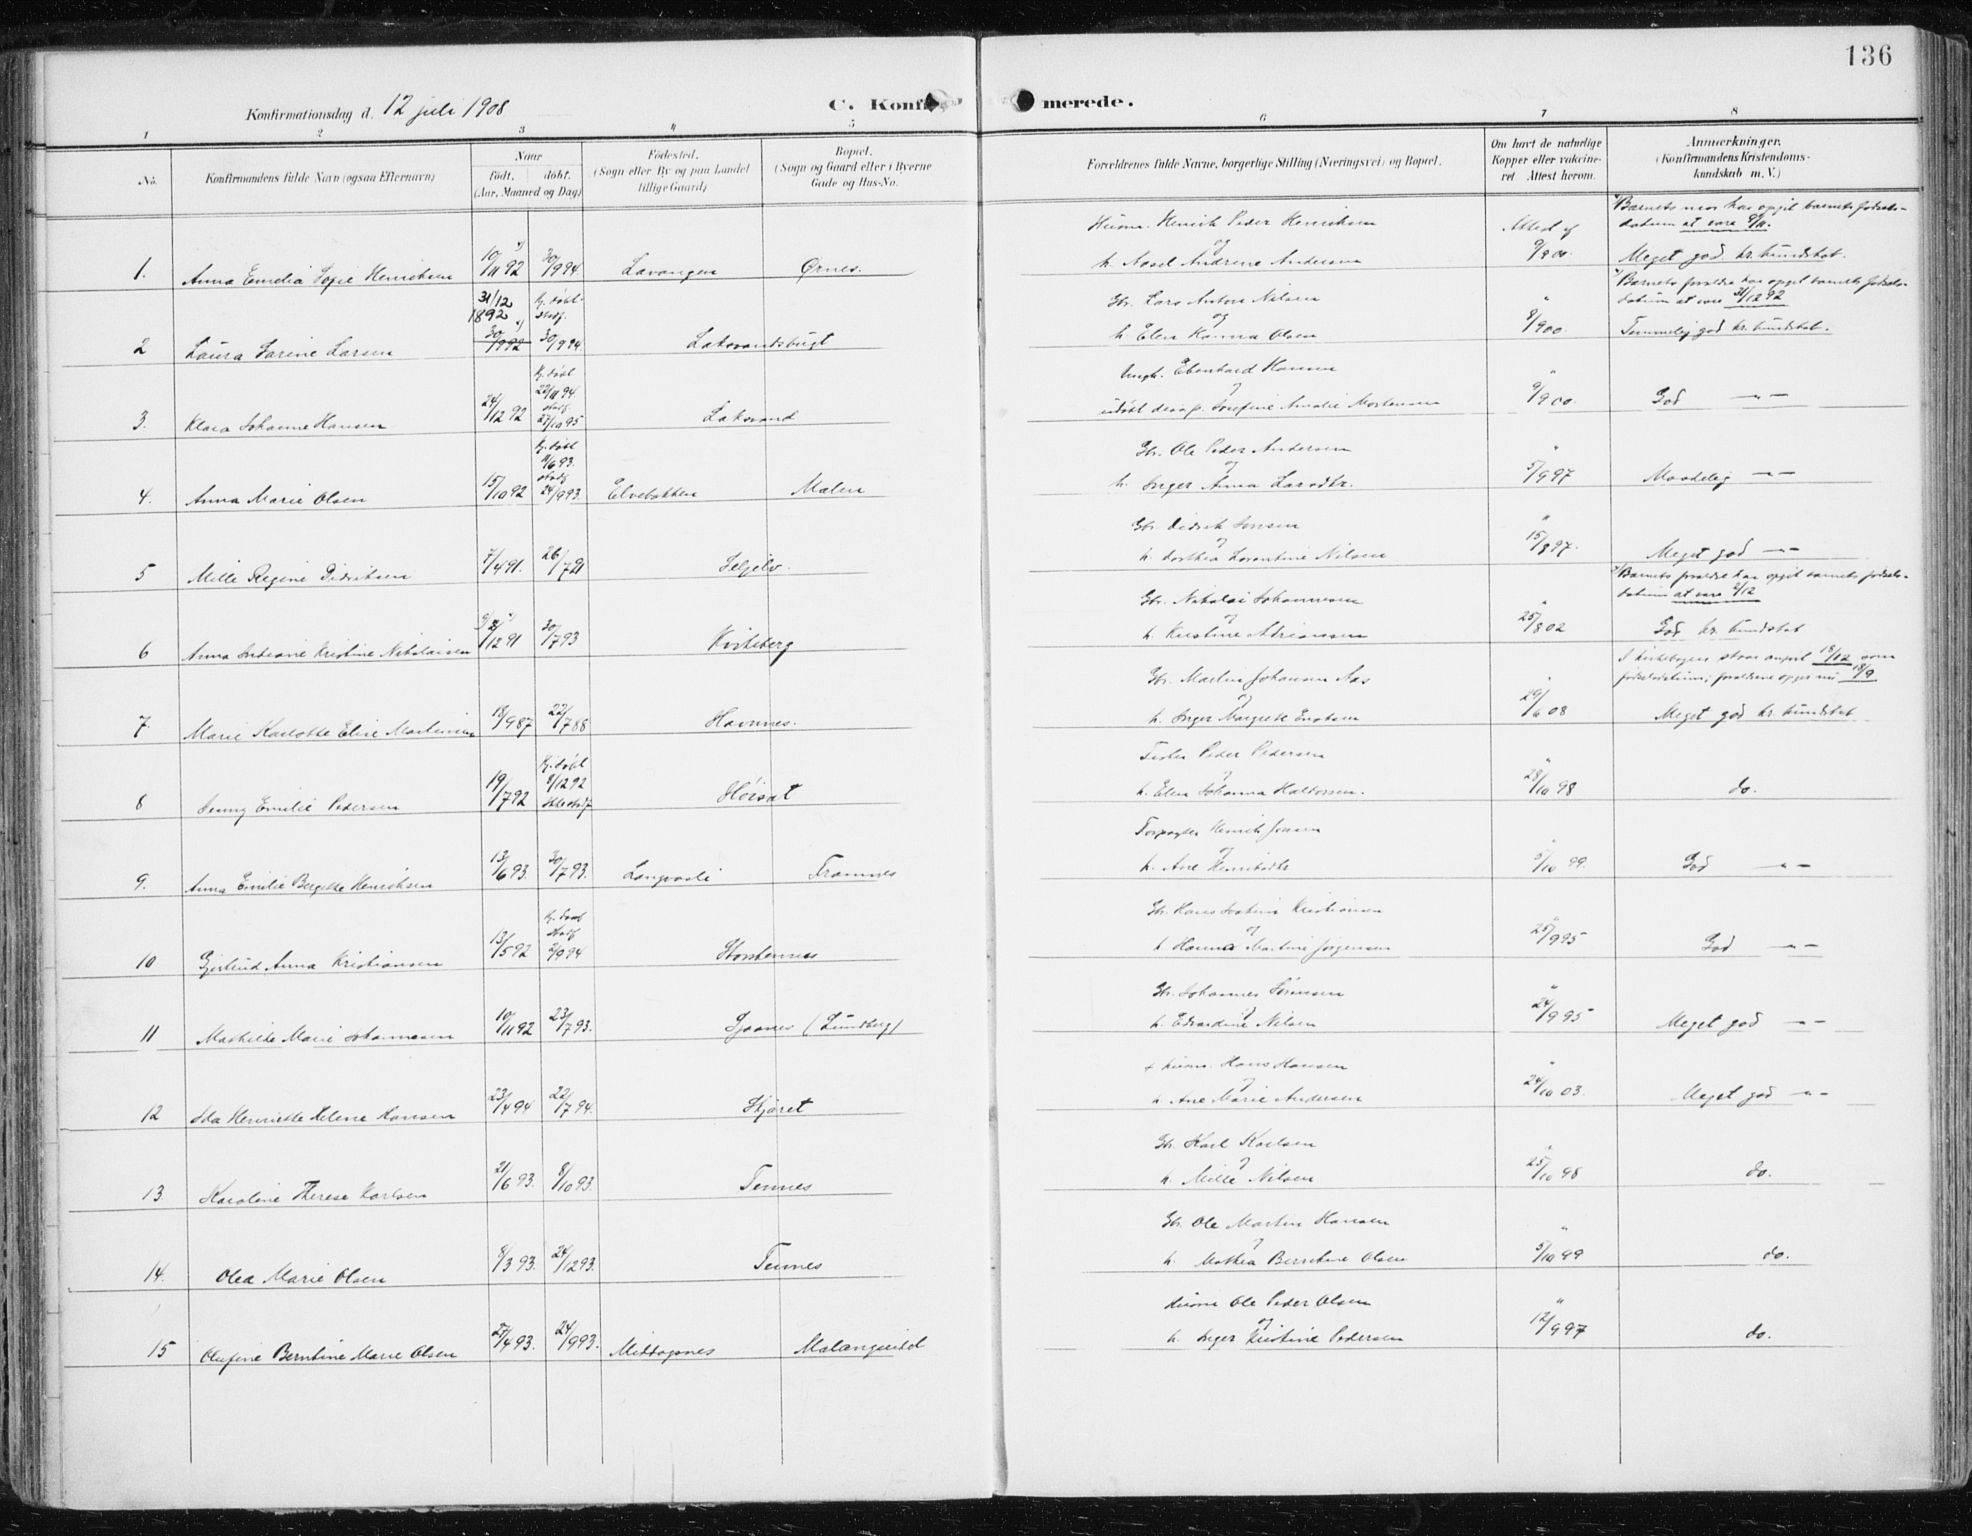 136
Konfirmationsdag d. 12 juli 1908
C. Konfir merede.
1 2 3 4 5 6 7 8
No.
Konfirmandens fulde Navn (ogsaa Efternavn)
Naar
født. døbt.
(Aar, Maaned og Dag)
Fødested.
(Sogn eller By og paa Landet
tillige Gaard)
Bopæl.
(Sogn og Gaard eller i Byerne
Gade og Hus-No.
Forældrenes fulde Navne, borgerlige Stilling (Næringsvei) og Bopæl.
Om havt de naturlige
Kopper eller vakcine-
ret Attest herom.
Anmærkninger.
(Konfirmandens Kristendoms-
kundskab m. V.)
Husm. Henrik Peder Henriksen
og
Attest af
Barnets mor har opgit barnets fødsels-
datum at være 9/11.
1. Anna Emelia Sofie Henriksen 10/11 92 30/9 94 Lavangen Ørnes. h. Aasel Andrine Andersen 9/9 00. Meget god kr. kundskab.
31/12
1892
Hj. døbt
stadf.
Gbr. Lars Anton Nilsen
og
Barnets forældre har opgit barnets fødsels-
datum at være 31/12 92
2 Laura Sarine Larsen 30/9 92 30/9 94 Laksvandsbugt h. Elen Hanna Olsen 8/9 00. Temmelig god kr. kundskab.
Hj. døbt
22/11 94
stadf.
Ungk. Ebenhard Hansen
og
3. Klara Johanne Hansen 24/12 92 27/10 95 Laksvand Josefine Amalie Mortensen 9/9 00 God — " —
Hj. døbt
11/6 93.
stadf.
Gbr. Ole Peder Andersen
og
4. Anna Marie Olsen 15/10 92 24/9 93. Elvebakken Malen h. Inger Anna Larsdtr. 5/9 97 Maadelig — " —
Gbr. Didrik Jensen
og
5 Mille Regine Didriksen 7/4 91. 26/7 91 Seljelv. h. Dorthea Lorentine Nilsen 15/8 97. Meget god — " —
Gbr. Nikolai Johannesen
Barnets forældre har opgit barnets fødsels-
datum at være 2/12
6 Anna Indiane Kristine Nikolaisen /12 91 30/7 93 Kviteberg h. Kristine Adriansen 25/8 02 God kr. kundskab
Gbr. Martin Johansen Aas
og
I kirkebogen staar anført 18/12 som
fødselsdatum; forældrene opgir nu 18/9
7. Marie Karlotte Elise Martinsen 18/9 87 22/7 88 Havnnes. h. Inger Margrethe Enoksen 29/6 08 Meget god kr. kundskab
Hj. døbt
8/12 92
Fisker Peder Pedersen
og
8 Jenny Emilie Pedersen 19/7 92 Heisat h. Elen Johanna Haldorsen. 28/10 98 do.
Forpagter Henrik Jensen
og
9. Anna Emilie Bergitte Henriksen 13/6 93. 30/7 93. Langvasli Framnes h. Ane Henriksdtr 5/10 99. God — " —
Stadf.
Gbr. Hans Kristiansen
og
10 Gjertrud Anna Kristiansen 13/5 92 2/9 94 Storstennes h. Hanna Martine Jørgensen 25/9 95 God — " —
Gbr. Johannes Sørensen
og
11 Mathilde Marie Johannesen 10/11 92 23/7 93. Sjaanes (Lundberg) h. Edvardine Nilsen 24/9 95 Meget god — " —
+ husm. Hans Hansen
og
12 Ida Henriette Helene Hansen 23/4 94 22/7 94. Skjæret h. Ane Marie Andersen 24/10 03. Meget god — " —
Gbr. Karl Karlsen
og
13. Karoline Therese Karlsen 21/6 93. 8/10 93. Tennes h. Mille Nilsen 25/10 98 do.
Gbr. Ole Martin Hansen
og
14. Olea Marie Olsen 8/3 93. 24/12 93. Tennes h. Mathea Berntine Olsen 5/10 99 do.
Husm. Ole Peder Olsen
og
15 Olufine Berntine Marie Olsen 27/4 93. 24/9 93. Middagsnes Malangseidet h. Inger Kristine Pedersen 12/9 97 do.